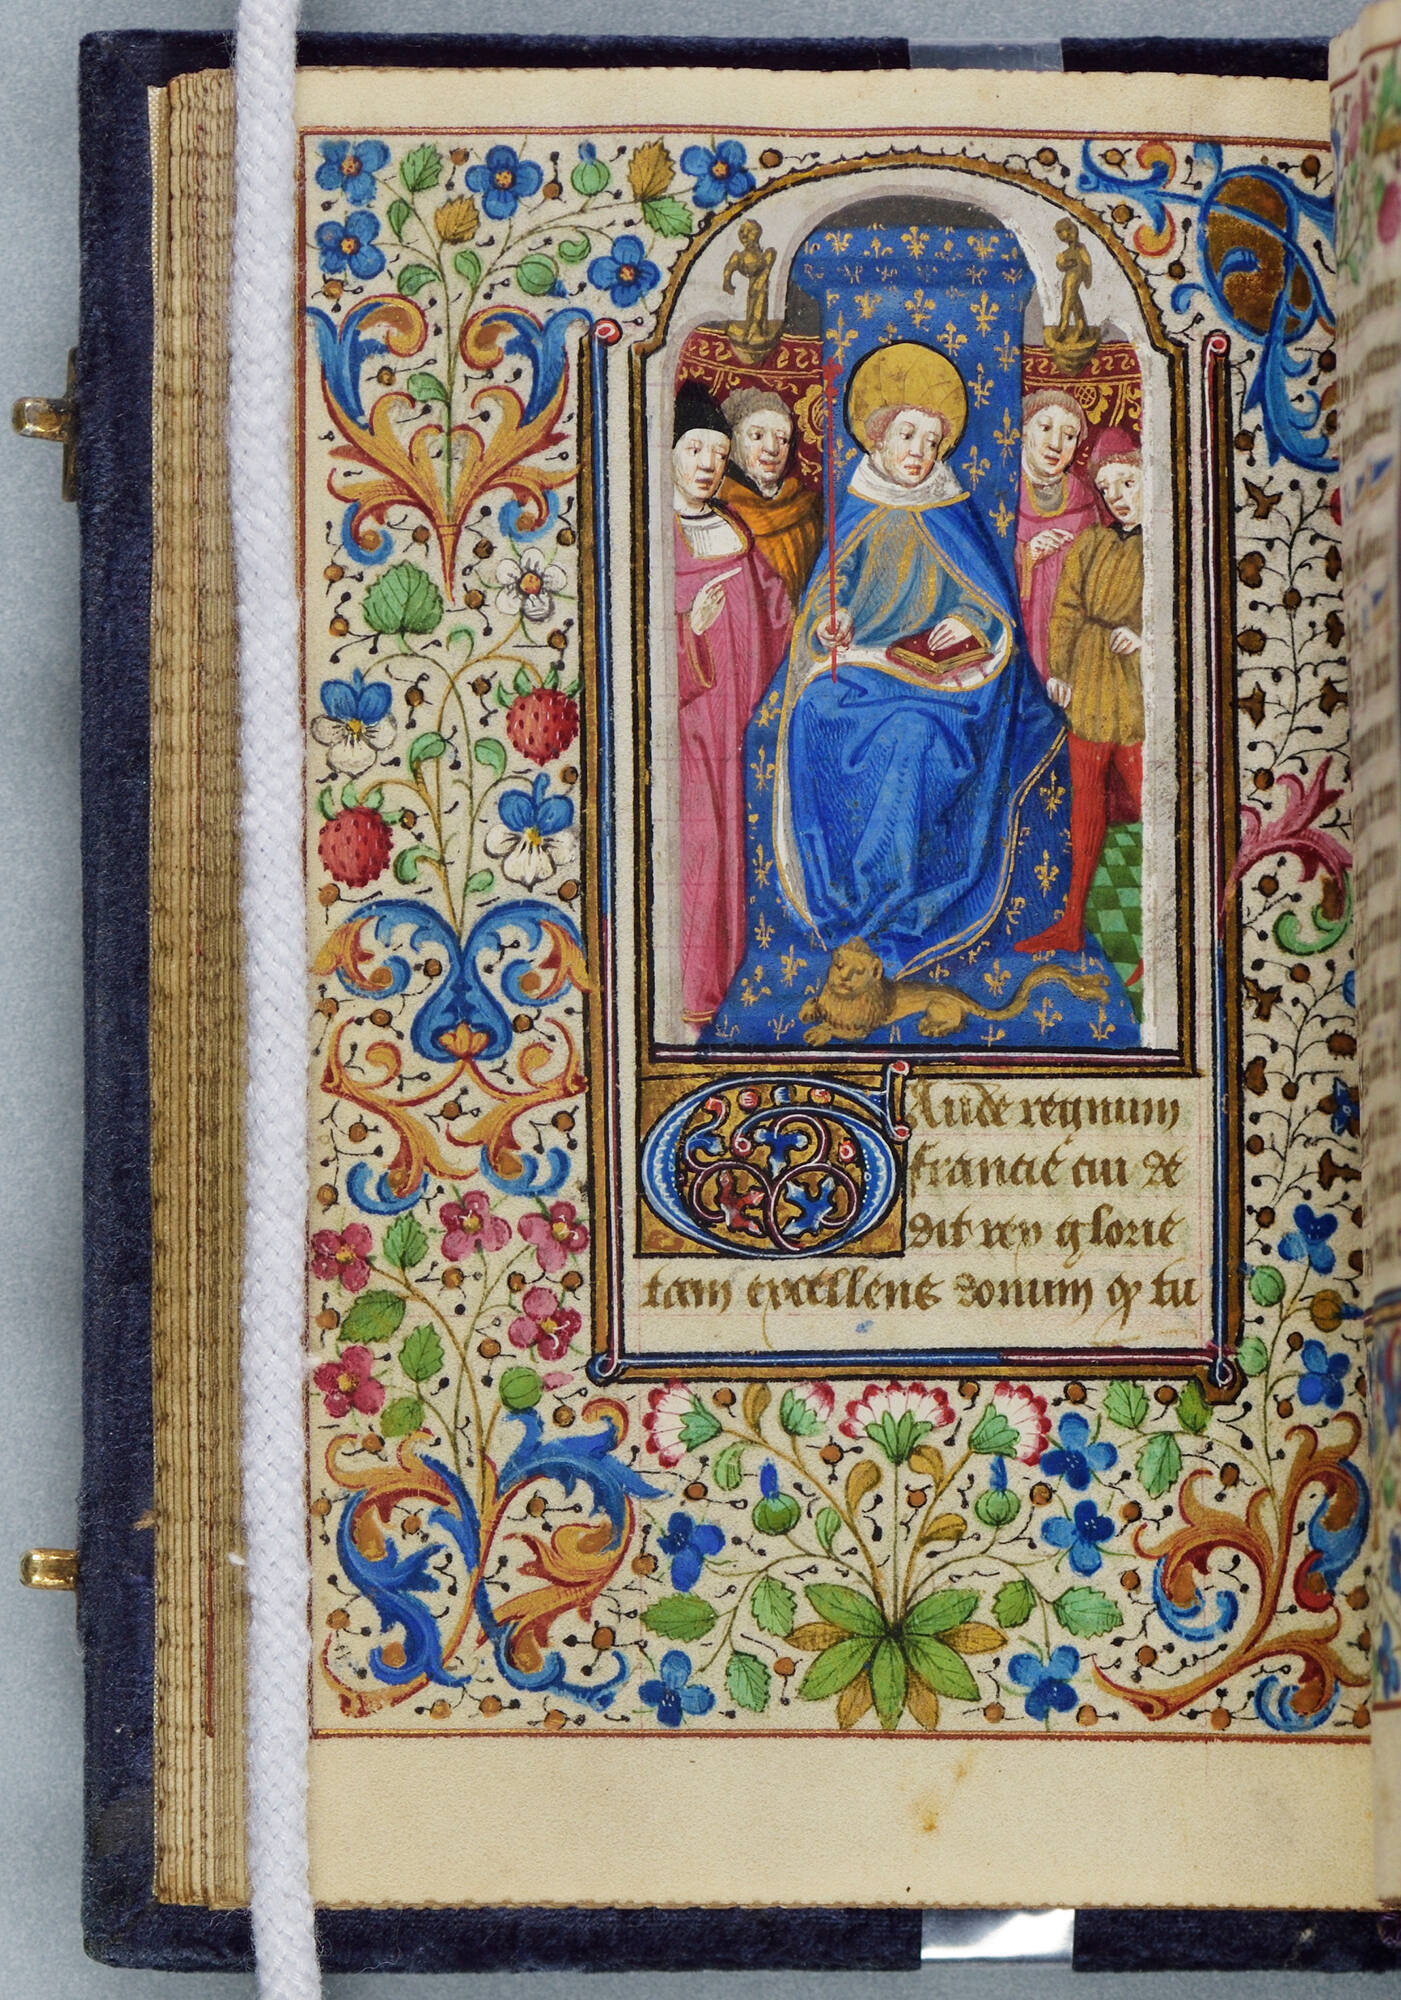 GAude regnum
francie cui de
dit rex glorie
tam excellens donum qꝫ tu